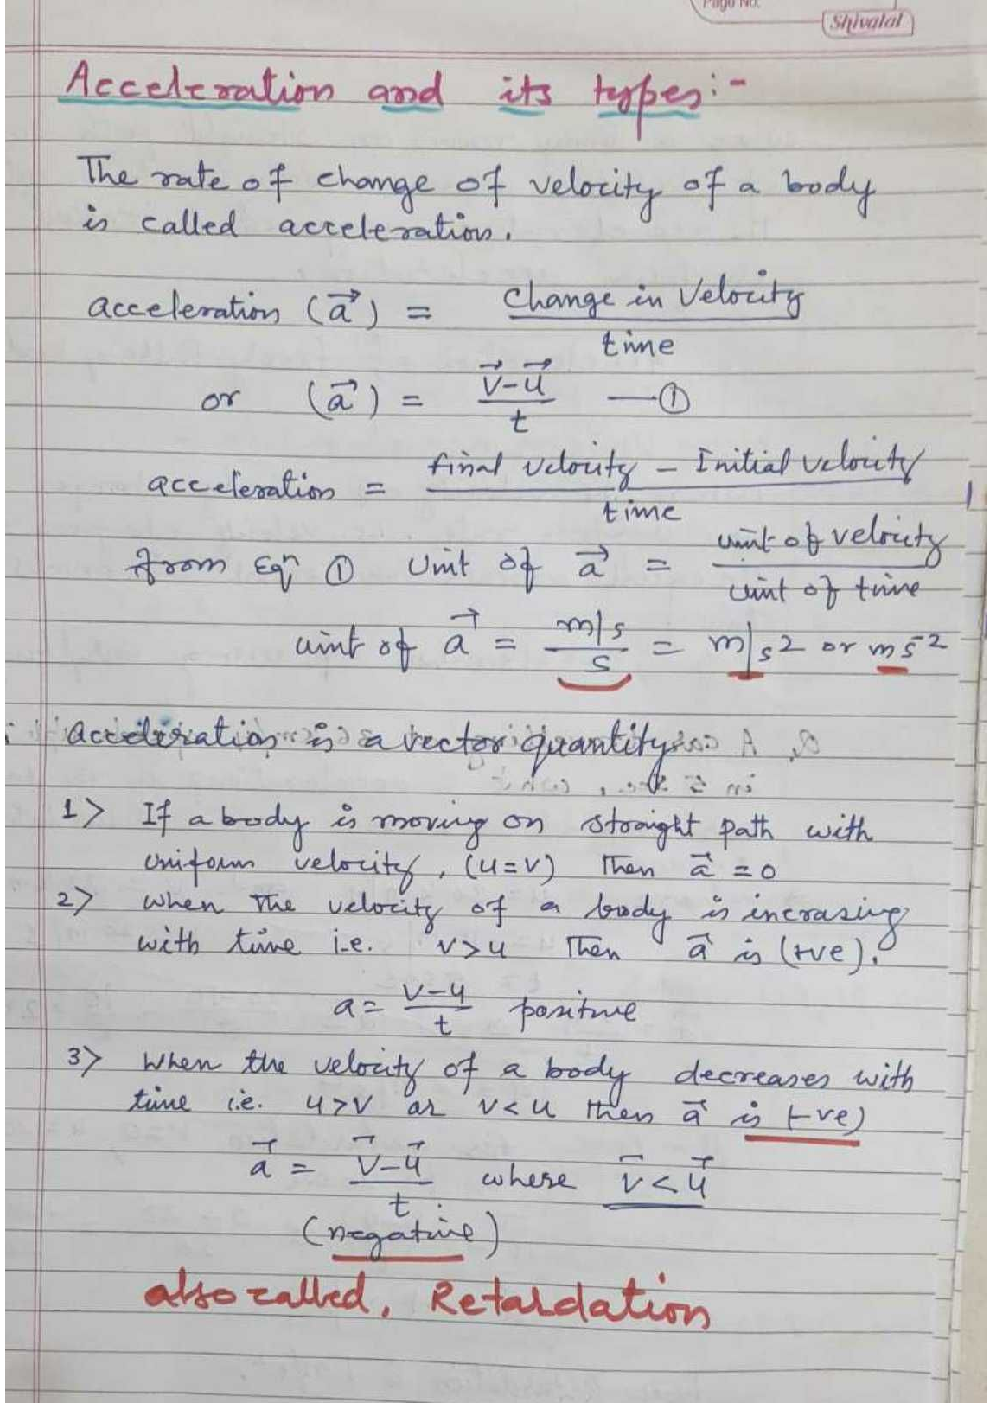 Page No.
Shivalal
Acceleration and its types:-
The rate of change of velocity of a body
is called acceleration.
acceleration (a⃗) = change in velocity / time
or (a⃗) = v⃗-u⃗ / t —①
acceleration = final velocity - Initial velocity / time
from Eqⁿ ① Unit of a⃗ = unit of velocity / unit of time
unit of a⃗ = m/s / s = m/s² or ms⁻²
acceleration is a vector quantity
1> If a body is moving on straight path with
uniform velocity, (u=v) Then a⃗ = 0
2> when the velocity of a body is incrasing
with time i.e. v>u Then a⃗ is (+ve).
a = v-u / t positive
3> When the velocity of a body decreases with
time i.e. u>v or v<u then a⃗ is (-ve)
a⃗ = v⃗-u⃗ / t where v⃗<u⃗
(negative)
also called, Retardation